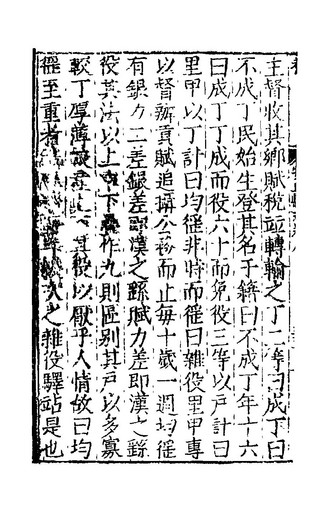 主督收其鄉賦稅並轉輸之丁二等曰成丁曰
不成丁民始生登其名于籍曰不成丁年十六
曰成丁丁成而役六十而免役三等以戶計曰
里甲以丁計曰均徭非時而徭曰雜役里甲專
以督辦貢賦追攝公務而止每十歲一週均徭
有銀力二差銀差即漢之繇賦力差即漢之繇
役其法以上中下作九則區別其戶以多寡
較丁厚薄其役以厭乎人情故曰均
徭至重者之雜役驛站是也